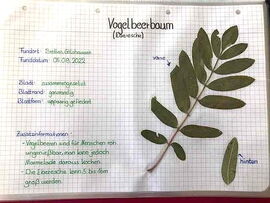 Vogelbeerbaum
(Eberesche)
vorne
Fundort:
Funddatum: 05.09.2022
Blatt: zusammengesetzt
Blattrand: gesägt
Blattform: unpaarig gefiedert
Zusatzinformationen:
- Vogelbeeren sind für Menschen roh
ungenießbar, man kann jedoch
Marmelade daraus kochen.
- Die Eberesche kann 15m
groß werden.
hinten